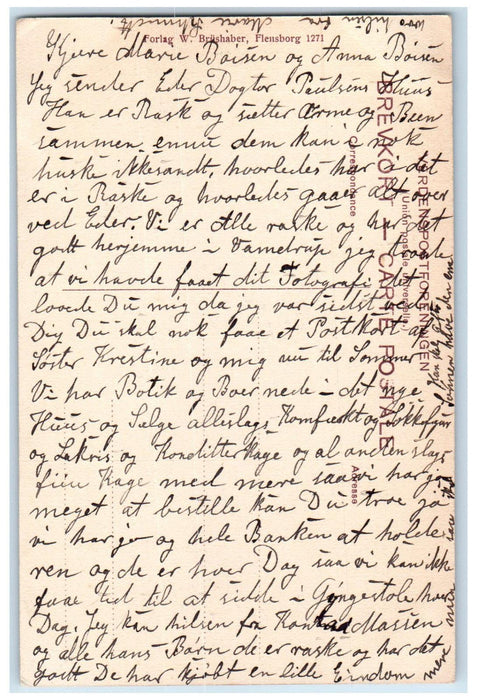 Forlag W. Brüshaber, Flensborg 1271
Kjære Marie Boisen og Anna Boisen
Jeg sender Eder Dogtor Paulsens Huus
Han er Rask og sætter Arme og Been
sammen ennu dem kan i nok
huske ikkesandt, hvorledes har i det
er i Raske og hvorledes gaaer alt over
ved Eder. Vi er Alle raske og har det
godt herjemme i Vamdrup jeg
at vi havde faaet dit Fotografi det
lovede Du mig da jeg var sidst ved
Dig Du skal nok faae et Postkort af
Søster Krestine og mig nu til Sommer
Vi har Botik og Boer nede i det nye
Huus og Sælge allislags Komfækt og
og Lakris og Konditterkage og al anden slags
fiin Kage med mere saa vi har jo
meget at bestille kan Du troe ja
vi har jo og hele Banken at holde
ren og de er hver Dag saa vi kan ikke
faae tid til at sidde i Gyngestole hver
Dag. Jeg kan hilsen fra Massen
og alle hans Børn de er raske og har det
godt De har kjøbt en lille Eindom
BREVKORT — CARTE POSTALE
Correspondance
VERDENSPOSTFORENINGEN
Union postale universelle
Adresse